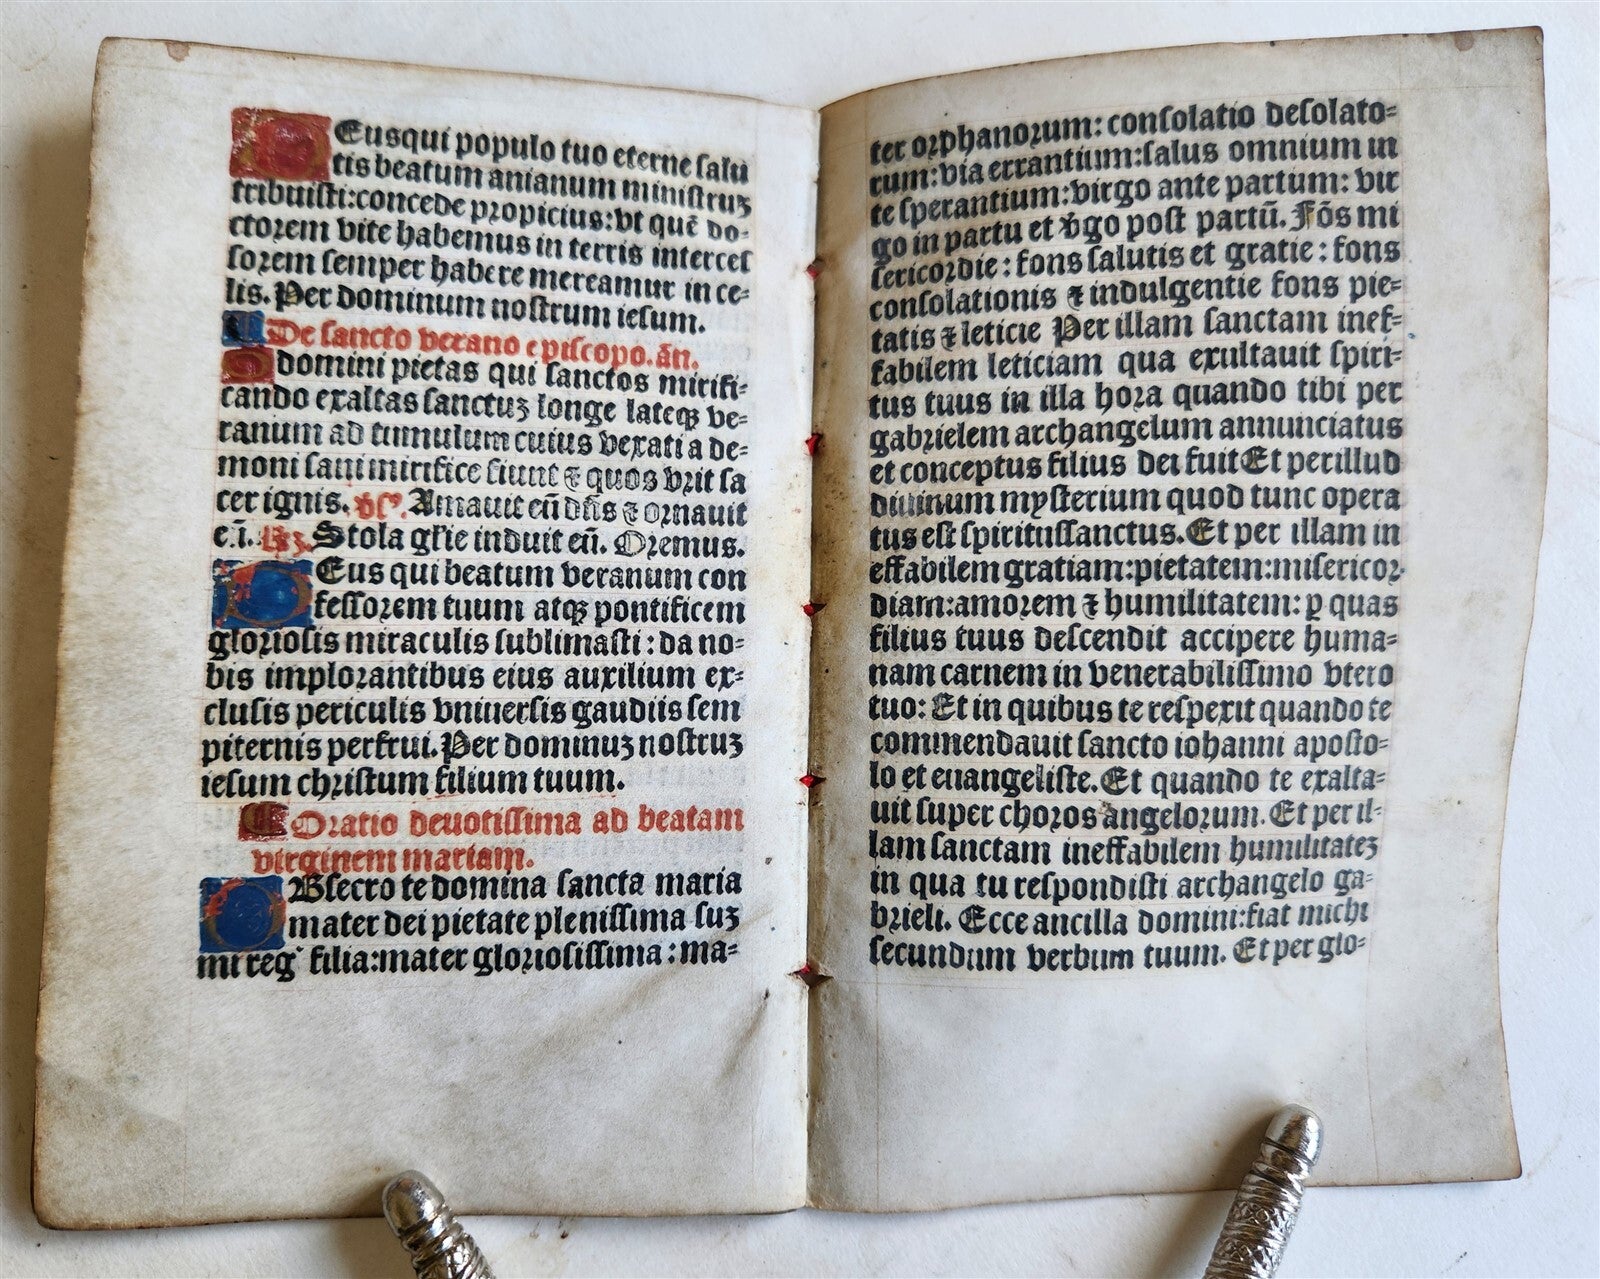 DEusqui populo tuo eterne salu
tis beatum anianum ministruꝫ
tribuisti:concede propicius:vt quē do-
ctorem vite habemus in terris interces
sorem semper habere mereamur in ce-
lis. Per dominum nostrum iesum.
De sancto verano episcopo.añ.
O domini pietas qui sanctos mirifi-
cando exaltas sanctuꝫ longe lateqꝫ ve-
ranum ad tumulum cuius vexati a de-
moni sani mirifice fiunt ⁊ quos vrit sa
cer ignis. v̓s. Amauit eū dn̄s ⁊ ornauit
e.i. R̓ꝫ. Stola gl̓ie induit eū. Oremus.
DEus qui beatum veranum con
fessorem tuum atqꝫ pontificem
gloriosis miraculis sublimasti: da no-
bis implorantibus eius auxilium ex-
clusis periculis vniuersis gaudiis sem
piternis perfrui. Per dominuꝫ nostruꝫ
iesum christum filium tuum.
Oratio deuotissima ad beatam
virginem mariam.
OBsecro te domina sancta maria
mater dei pietate plenissima suꝫ
mi reg᷒ filia:mater gloriosissima: ma-
ter orphanorum: consolatio desolato-
rum:via errantium:salus omnium in
te sperantium:virgo ante partum: vir
go in partu et v̓go post partū. Fōs mi
sericordie: fons salutis et gratie: fons
consolationis ⁊ indulgentie fons pie-
tatis ⁊ leticie Per illam sanctam inef-
fabilem leticiam qua exultauit spiri-
tus tuus in illa hora quando tibi per
gabrielem archangelum annunciatus
et conceptus filius dei fuit Et per illud
diuinum mysterium quod tunc opera
tus est spiritussanctus. Et per illam in
effabilem gratiam:pietatem:misericor-
diam:amorem ⁊ humilitatem: ꝑ quas
filius tuus descendit accipere huma-
nam carnem in venerabilissimo vtero
tuo: Et in quibus te respexit quando te
commendauit sancto iohanni aposto-
lo et euangeliste. Et quando te exalta-
uit super choros angelorum. Et per il-
lam sanctam ineffabilem humilitateꝫ
in qua tu respondisti archangelo ga-
brieli. Ecce ancilla domini:fiat michi
secundum verbum tuum. Et per glo-